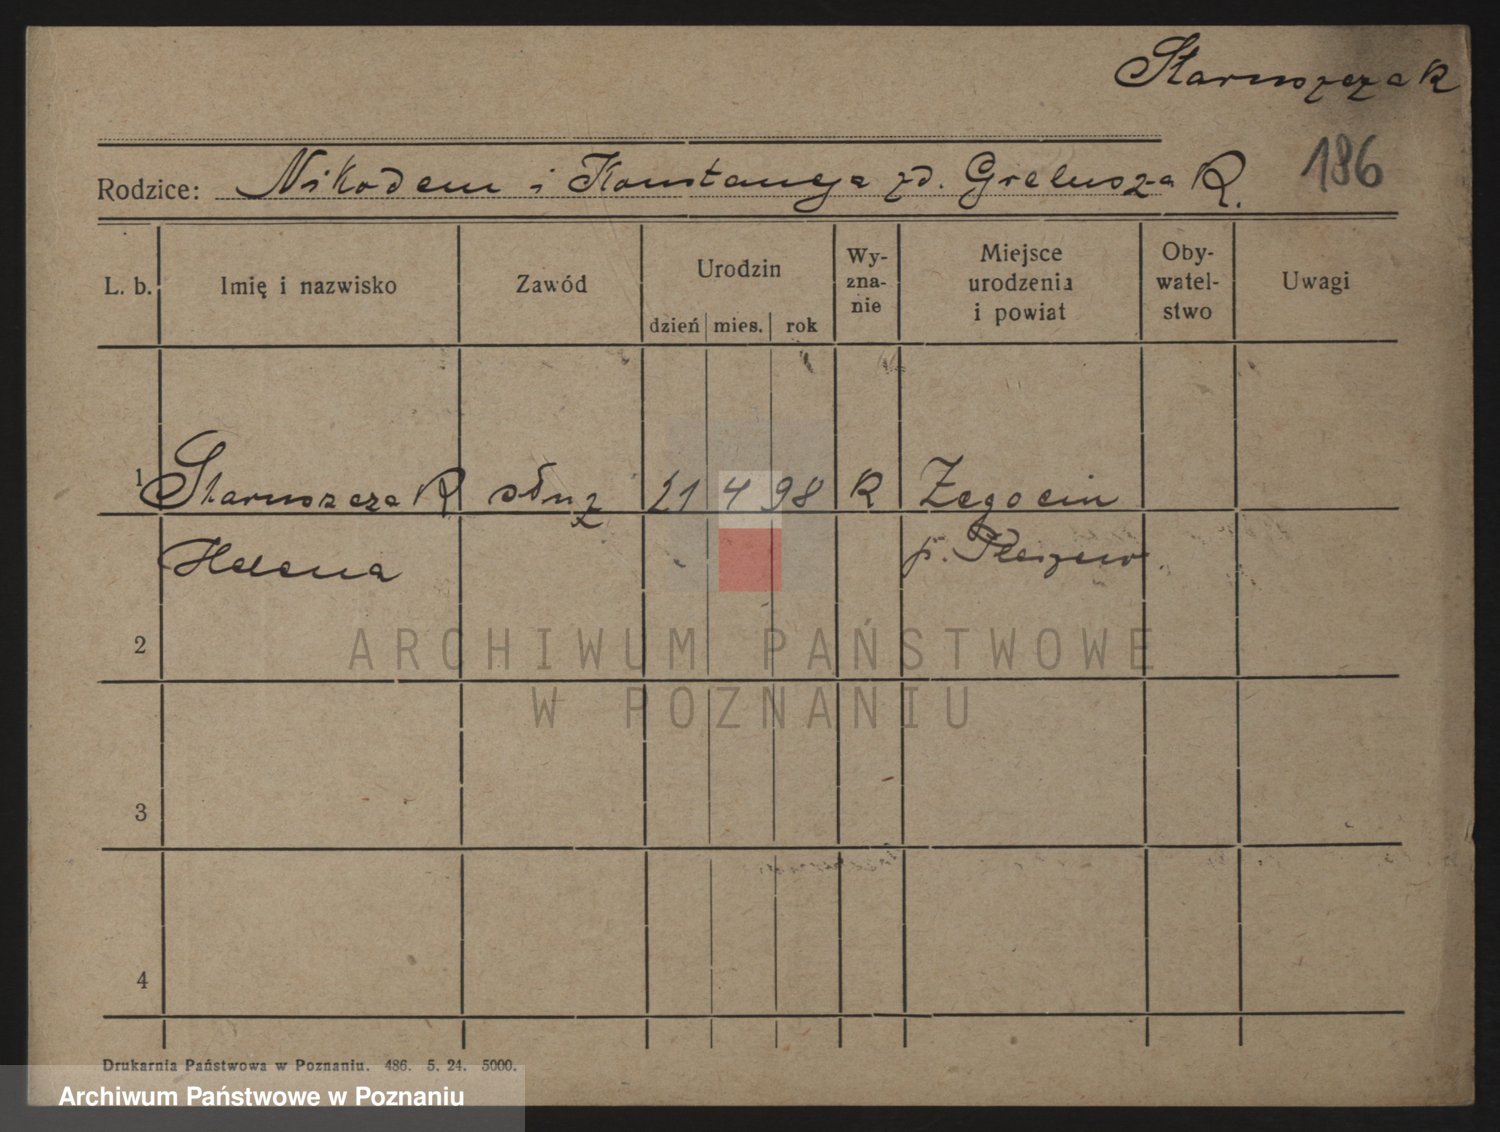 Staruszczak
186
Rodzice: Nikodem i Konstancja zd. Grelusza R.
L. b. Imię i nazwisko Zawód Urodzin dzień mies. rok Wy-zna-nie Miejsce urodzenia i powiat Oby-watel-stwo Uwagi
1 Staruszczak służ 21 4 98 R Żegocin
Helena p. Pleszew.
2
3
4
ARCHIWUM PAŃSTWOWE
W POZNANIU
Drukarnia Państwowa w Poznaniu. 486. 5. 24. 5000.
Archiwum Państwowe w Poznaniu